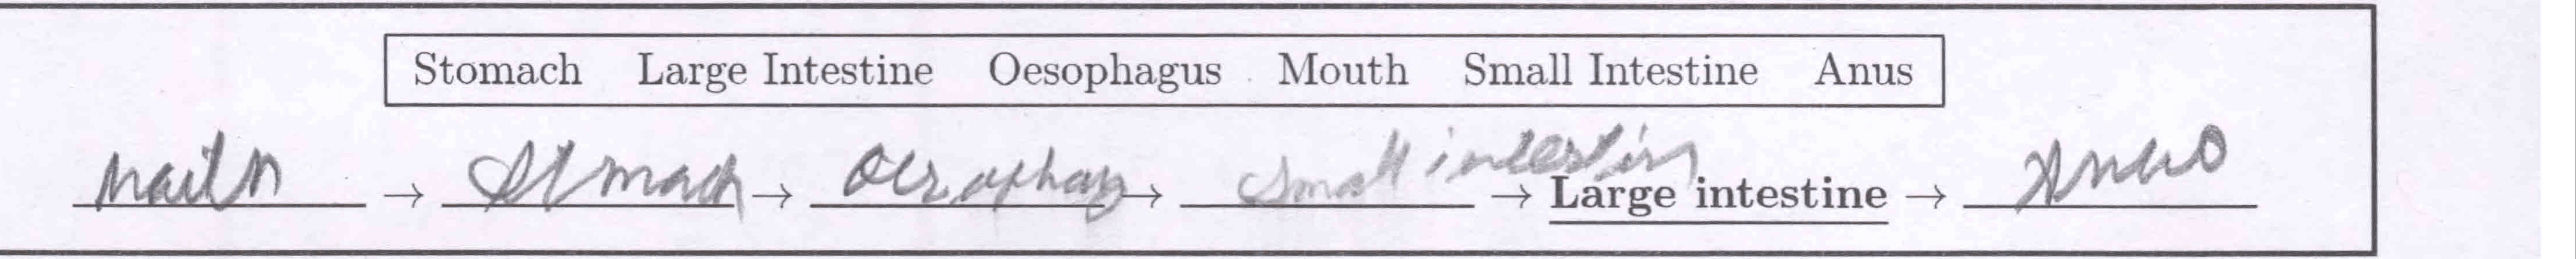 Stomach Large Intestine Oesophagus Mouth Small Intestine Anus
Mauth → Stmach → Oesophag → Small intestin → Large intestine → Anus